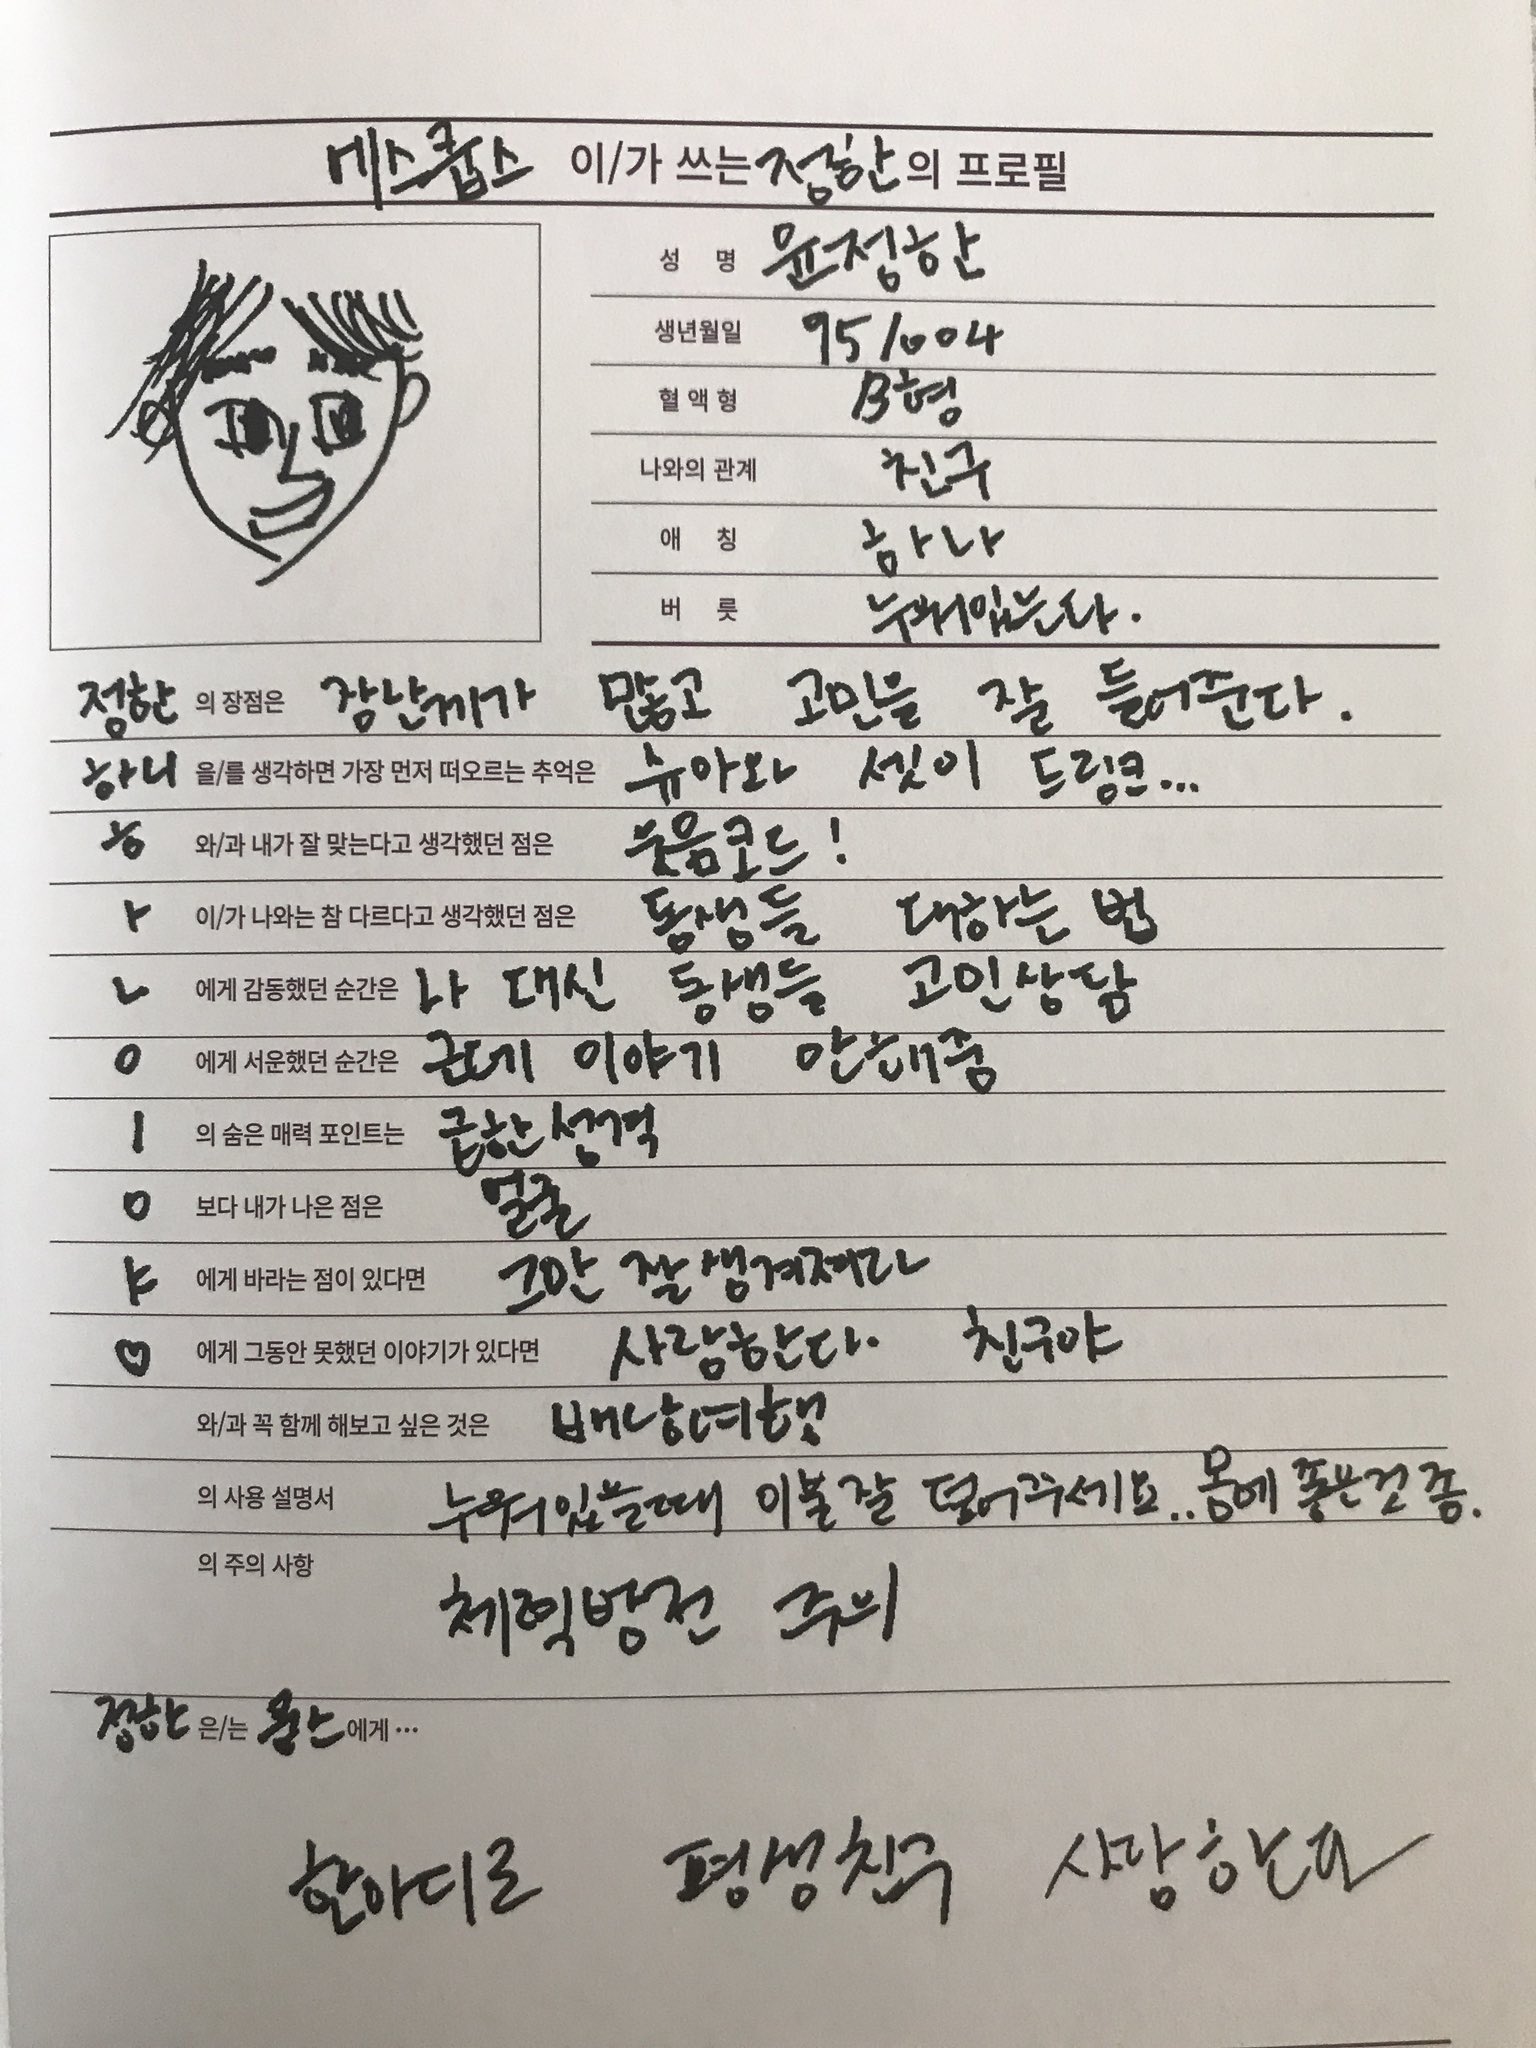 에스쿱스 이/가 쓰는 정한의 프로필
성 명 윤정한
생년월일 951004
혈액형 B형
나와의 관계 친구
애 칭 하나
버 릇 누워있는다.
정한 의 장점은 장난끼가 많고 고민을 잘 들어준다.
하니 을/를 생각하면 가장 먼저 떠오르는 추억은 슈아와 셋이 드링크...
ㅎ 와/과 내가 잘 맞는다고 생각했던 점은 웃음코드!
ㅏ 이/가 나와는 참 다르다고 생각했던 점은 동생들 대하는 법
ㄴ 에게 감동했던 순간은 나 대신 동생들 고민상담
ㅇ 에게 서운했던 순간은 근데 이야기 안해줌
ㅣ 의 숨은 매력 포인트는 급한성격
ㅁ 보다 내가 나은 점은 얼굴
ㅑ 에게 바라는 점이 있다면 그만 잘생겨져라
에게 그동안 못했던 이야기가 있다면 사랑한다. 친구야
와/과 꼭 함께 해보고 싶은 것은 배낭여행
의 사용 설명서 누워있을때 이불잘 덮어주세요.. 몸에 좋은것 줌.
의 주의 사항 체력방전 주의
정한 은/는 에게 ···
한마디로 평생친구 사랑한다